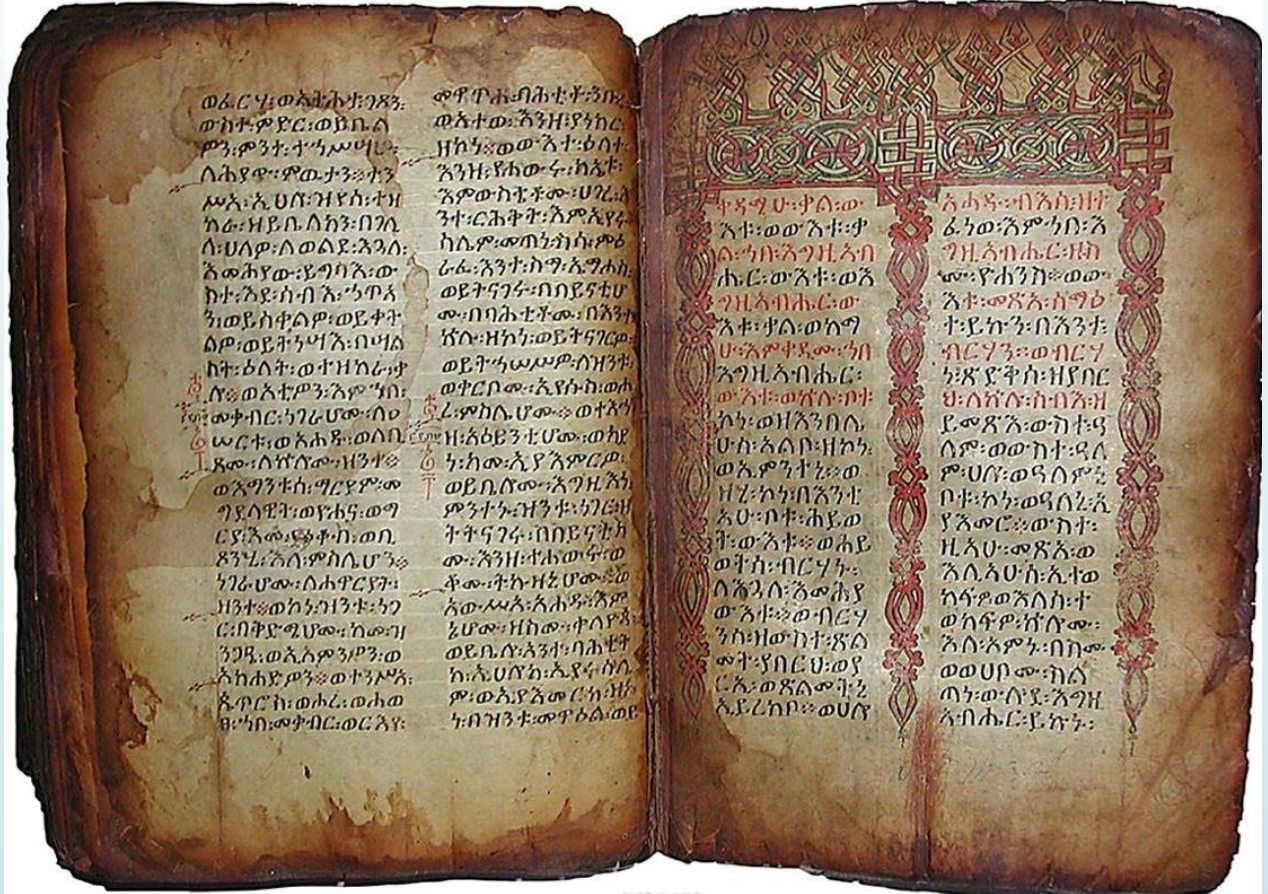 ወፈርሃ፡ወአትሐታ፡ገጾን፡
ውስተ፡ምድር፡ወይቤል
ዎን፡ምንተ፡ተኀሥሣሁ፡
ሥአ፡ኢሀሎ፡ዝየሰ፡ተዘ
ከራ፡ዘይቤለክን፡በገሊ
ላ፡ሀለዎ፡ለወልደ፡እጓለ፡
እመሕያው፡ይግባእ፡ው
ስተ፡እደ፡ሰብእ፡ኀጥኣ
ን፡ወይሰቅልዎ፡ወይቀት
ልዎ፡ወይትነሣእ፡በሣል
ስት፡ዕለት፡ወተዘከራ፡ቃ
ሎ፡ወአቲዎን፡እምኀበ፡
መቃብር፡ነገራሆሙ፡
ወአሐዱ፡ወለቢ
ጾሙ፡ለኵሎሙ፡ዘንተ።
ወእማንቱሰ፡ማርያም፡መ
ግደላዊት፡ወዮሐና፡ወማ
ርያ፡እመ፡ያዕቆብ፡ወቢ
ጾንሂ፡እለ፡ምስሌሆን።
ነገራሆሙ፡ለሐዋርያት፡
ዘንተ።ወኮነ፡ዝንቱ፡ነገ
ር፡በቅድሜሆሙ፡ከመ፡ዝ
ንጋዔ፡ወኢአምንዎን፡ወ
አክሐድዎን።ወተንሥአ፡
ጴጥሮስ፡ወሖረ፡ወሐወ
ጸ፡ኀበ፡መቃብር፡ወርእየ፡
መዋጥሐ፡ባሕቲቶ፡ንቡ
ወአተወ፡እንዘ፡ያነክር፡
ዘኮነ።ወውእተ፡ዕለተ፡
እንዘ፡የሐውሩ፡ክልኤቱ፡
እምውስቴቶሙ፡ሀገረ፡እ
ንተ፡ርሕቅት፡እምኢየሩ
ሳሌም፡መጠነ፡ስሳ፡ምዕ
ራፈ፡እንተ፡ስማ፡ኤማሁስ
ወይትናገሩ፡በበይናቲሆ
ሙ፡በባሕቲቶሙ፡በእንተ
ኵሉ፡ዘኮነ፡ወይትናገርዎ
ወይትኀሠሥዎ፡ለዝንቱ፡
ወቀርቦሙ፡ኢየሱስ፡ወሖ
ረ፡ምስሌሆሙ።ወተእኅ
ዘ፡አዕይንቲሆሙ፡ወከደ
ነ፡ከመ፡ኢያእምርዎ፡
ወይቤሎሙ፡እግዚእነ
ምንትኑ፡ዝንቱ፡ነገር፡ዘ
ትትናገሩ፡በበይናቲክ
ሙ፡እንዘ፡ተሐውሩ፡ወ
ቆሙ፡ትኩዛኒሆሙ።ወ
አውሥአ፡አሐዱ፡እም
ኔሆሙ፡ዘስሙ፡ቀለዮጳ
ወይቤሎ፡አንተ፡ባሕቲት
ከ፡ኢሀሎከ፡ኢየሩሳሌ
ም፡ወኢያእመርከ፡ዘኮ
ነ፡በዝንቱ፡መዋዕል፡ወይ
ቀዳሚሁ፡ቃል፡ው
እቱ፡ወውእቱ፡ቃ
ል፡ኀበ፡እግዚአብ
ሔር፡ውእቱ፡ወእ
ግዚአብሔር፡ው
እቱ፡ቃል፡ወከማ
ሁ፡እምቀዳሙ፡ኀበ
እግዚአብሔር፡
ውእቱ፡ወኵሉ፡ቦቱ፡
ኮነ፡ወዘእንበሌ
ሁሰ፡አልቦ፡ዘኮነ፡
ወኢምንተኒ።ወ
ዘሂ፡ኮነ፡በእንቲ
አሁ፡ቦቱ፡ሕይወ
ት፡ውእቱ።ወሕይ
ወትሰ፡ብርሃኑ፡
ለእጓለ፡እመሕያ
ው፡እቱ።ወብርሃ
ንሰ፡ዘውስተ፡ጽል
መት፡ያበርህ፡ወያ
ርኢ፡ወጽልመትኒ
ኢይረክቦ።ወሀሎ
አሐዱ፡ብእሲ፡ዘተ
ፈነወ፡እምኀበ፡እ
ግዚአብሔር፡ዘስ
ሙ፡ዮሐንስ።ወው
እቱ፡መጽአ፡ስምዕ
ተ፡ይኩን፡በእንተ፡
ብርሃን።ወብርሃ
ነ፡ጽድቅሰ፡ዘያበር
ህ፡ለኵሉ፡ሰብእ፡ዘ
ይመጽእ፡ውስተ፡ዓ
ለም፡ወውስተ፡ዓለ
ም፡ሀሎ፡ወዓለምኒ
ቦቱ፡ኮነ፡ወዓለኒ፡ኢ
ያእመሮ።ውስተ፡
ዚአሁ፡መጽአ፡ወ
እሊአሁሰ፡ኢተወ
ክፍዎ፡ወእለሰ፡ተ
ወክፍዎ፡ኵሎሙ፡
እለ፡አምኑ፡በስሙ
ወወሀቦሙ፡ስል
ጣነ፡ውሉደ፡እግዚ
አብሔር፡ይኩኑ፡